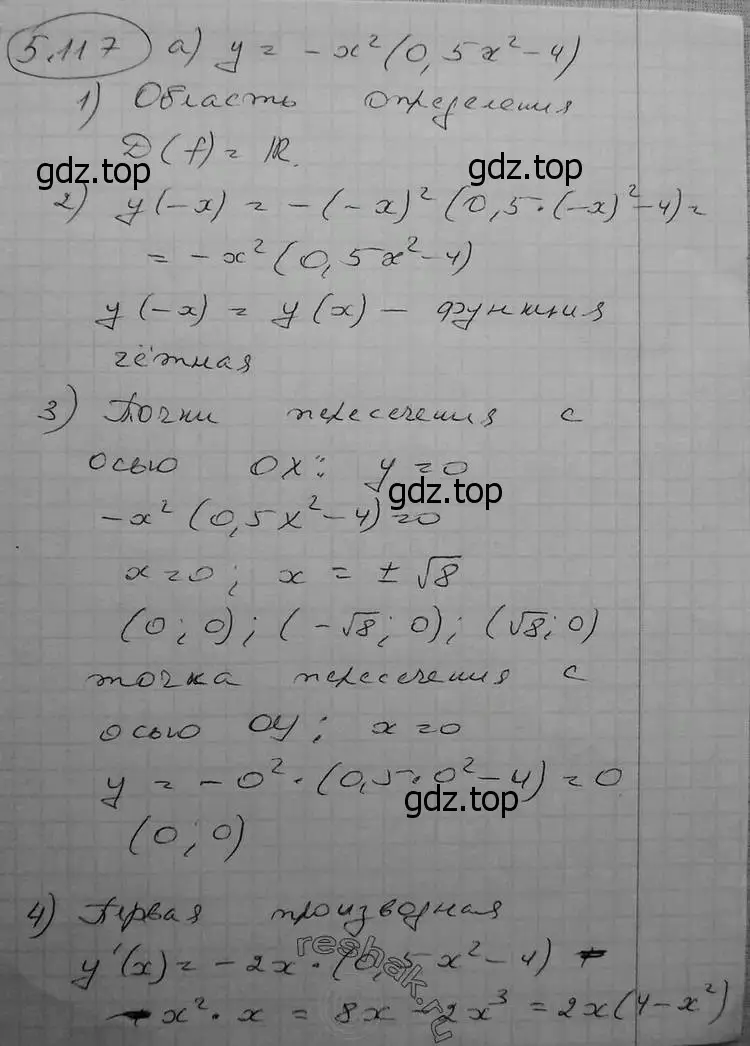 5.117 а) y = -x² (0,5x² - 4)
1) Область определения
D(f) = ℝ.
gdz.top
2) y(-x) = -(-x)² (0,5·(-x)² - 4) =
= -x² (0,5x² - 4)
y(-x) = y(x) - функция
чётная
3) Точки пересечения с
осью OX: y = 0
gdz.top
-x² (0,5x² - 4) = 0
x = 0; x = ±√8
(0; 0); (-√8; 0); (√8; 0)
точка пересечения с
осью OY; x = 0
y = -0²·(0,5·0² - 4) = 0
gdz.top
(0; 0)
4) Первая производная
reshak.ru
y'(x) = -2x·(0,5x² - 4) -
- x²·x = 8x - 2x³ = 2x(4 - x²)